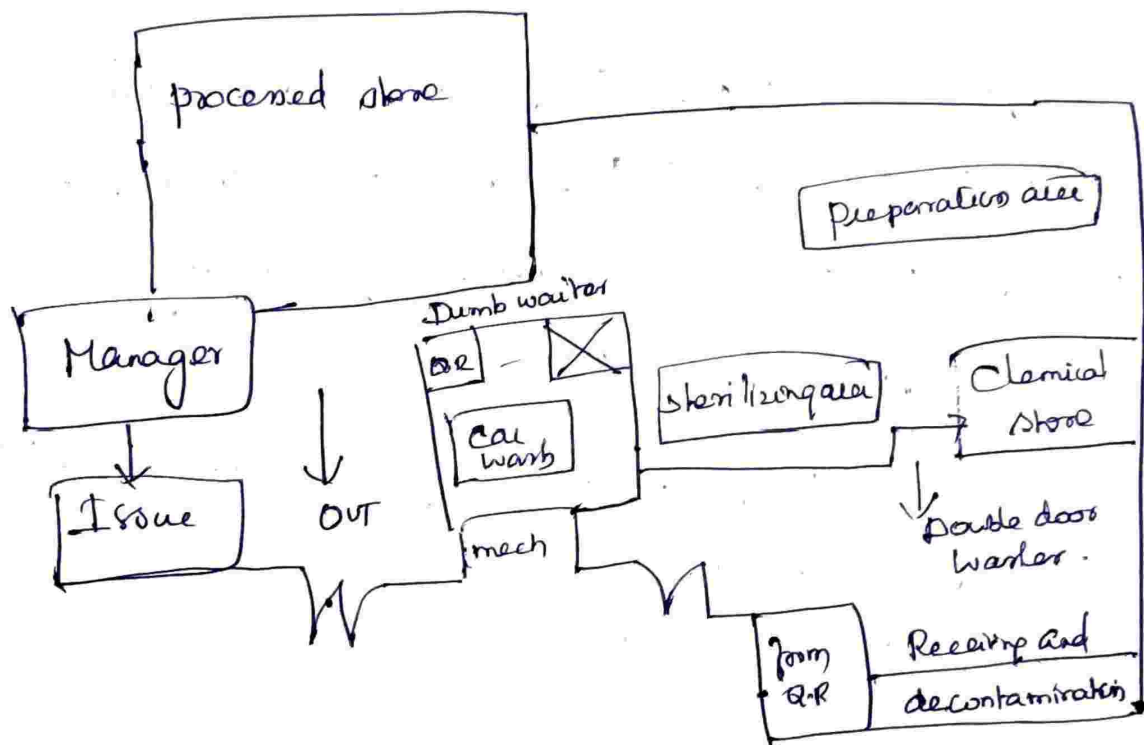 processed store
Preparation area
Dumb waiter
Manager
sterilizing area
Chemical
store
Car
wash
Issue
OUT
mech
Double door
washer.
from
Q.R
Receiving and
decontamination